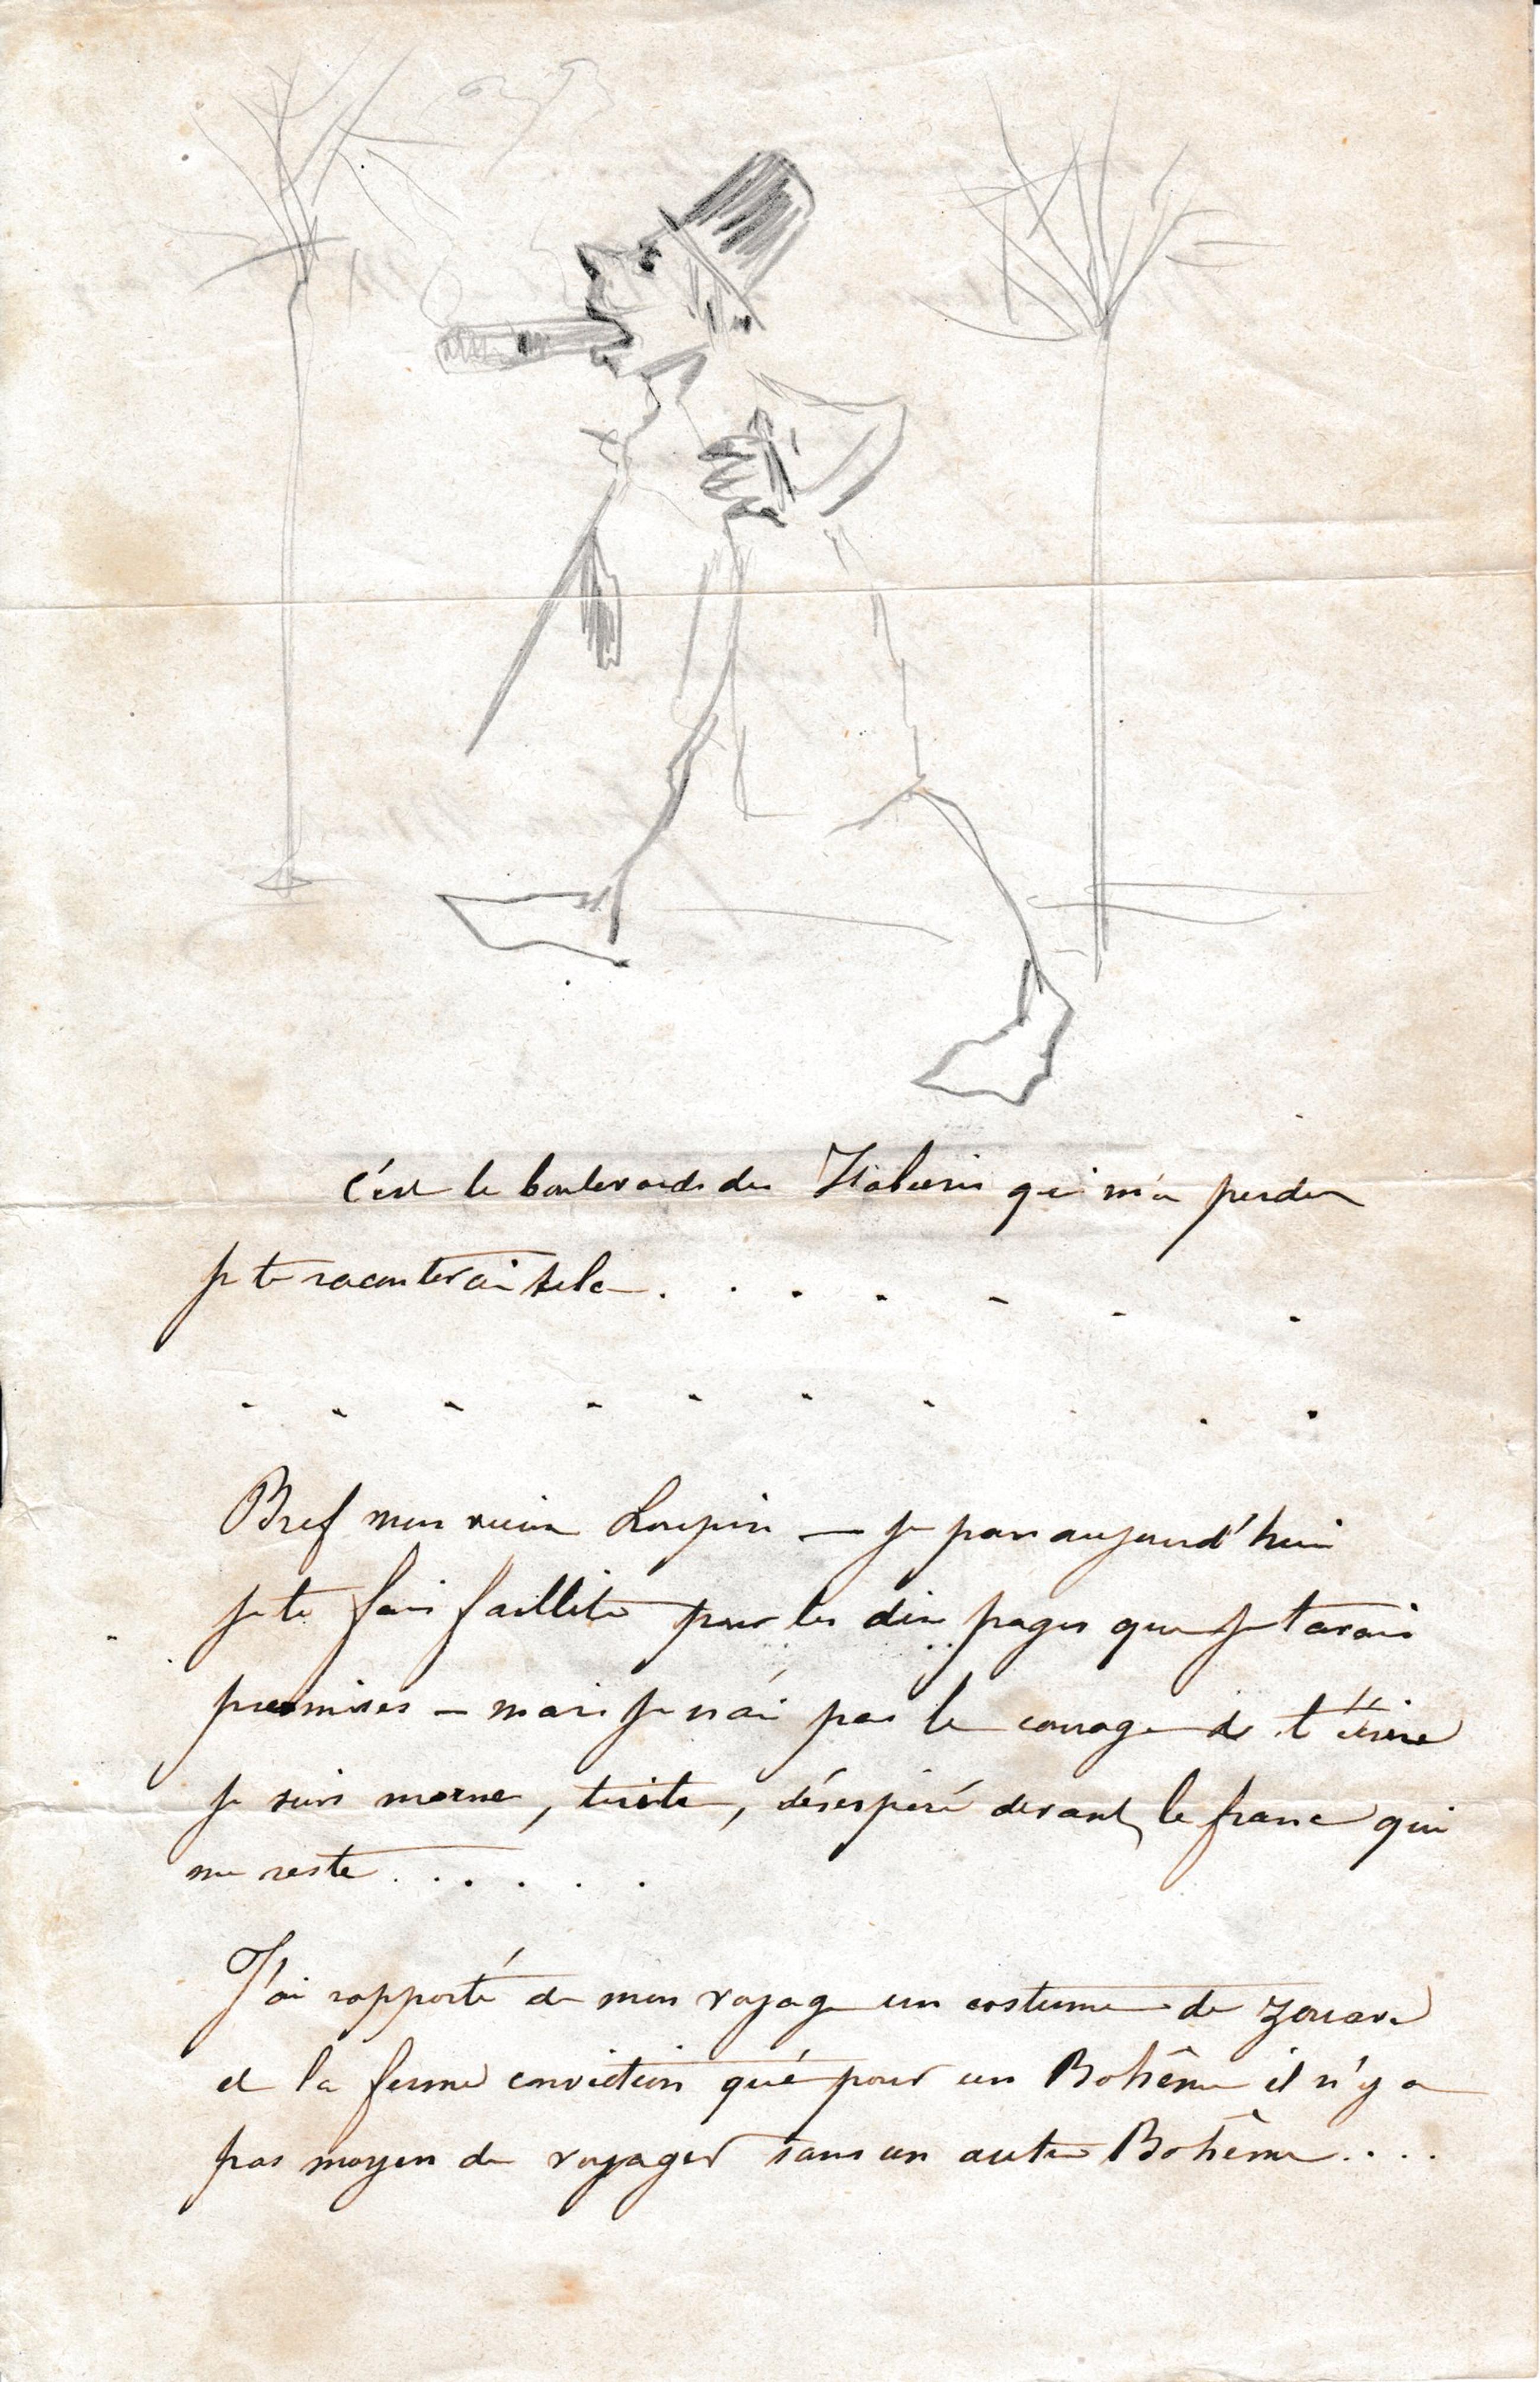 c'est le boulevards des Italiens qui m'a perdu
je te raconterai cela . . . . . . .
. . . . . . . . . .
Bref mon vieux Loupin — je pars aujourd'hui
je te fais faillite pour les dix pages que je t'avais
promises — mais je n'ai pas le courage de t'écrire
je suis morne, triste, désespéré devant le franc qui
me reste . . . . . .
J'ai rapporté de mon voyage un costume de zouave
et la ferme conviction que pour un Bohême il n'y a
pas moyen de voyager sans un autre Bohême . . . .